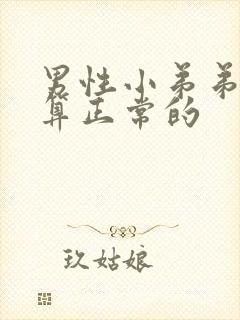 男性小弟弟
算正常的
玖姑娘